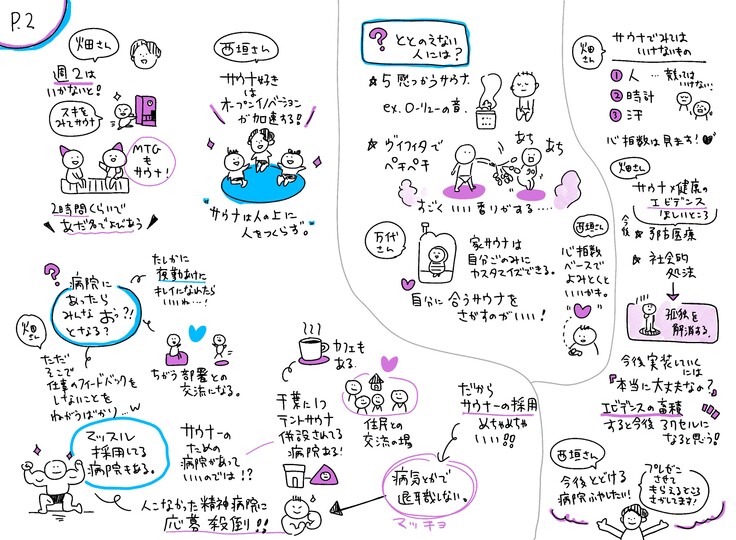 P.2
畑さん
週2は
いかないと!
スキを
みてサウナ
MTGも
サウナ!
2時間くらいで
あだ名でよびあう
西垣さん
サウナ好き
は
オープンイノベーション
が加速する!
サウナは人の上に
人をつくらず。
?
ととのえない
人には?
☆5感つかうサウナ
ex.ロウリューの音、
☆ヴィフィタで
ペチペチ
あち
あち
すごくいい香りがする....
万代さん
家サウナは
自分ごのみに
カスタマイズできる。
自分に合うサウナを
さがすのがいい!
西垣さん
心拍数
ベースで
よみとくと
いいかも。
畑さん
サウナでみては
いけないもの
①人
...競っては
いけない。
②時計
③汗
心拍数は見ます!
畑さん
サウナ×健康の
エビデンス
ほしいところ
今後
☆予防医療
☆社会的
処法
孤独を
解消する。
今後実装していく
には
「本当に大丈夫なの?」
エビデンスの蓄積
すると今後クリアに
なると思う!
西垣さん
今後とどける
病院ふやしたい!
プレゼン
させて
もらえるところ
さがしてます!
?
病院に
あったら
みんなおぅ?!
となる?
たしかに
夜勤あけに
キレイになれたら
いいね...!
畑さん
ただ
そこで
仕事のフィードバックを
しないことを
ねがうばかり...w
ちがう部署との
交流になる。
カフェも
ある。
千葉に1つ
テントサウナ
併設されてる
病院ある!
住民との
交流の場
サウナーの
ための
病院があって
いいのでは!?
だから
サウナーの採用
めちゃめちゃ
いい!!
病気とかで
退職しない。
マッチョ
マッスル
採用してる
病院もある。
人こなかった精神病院に
応募殺倒!!